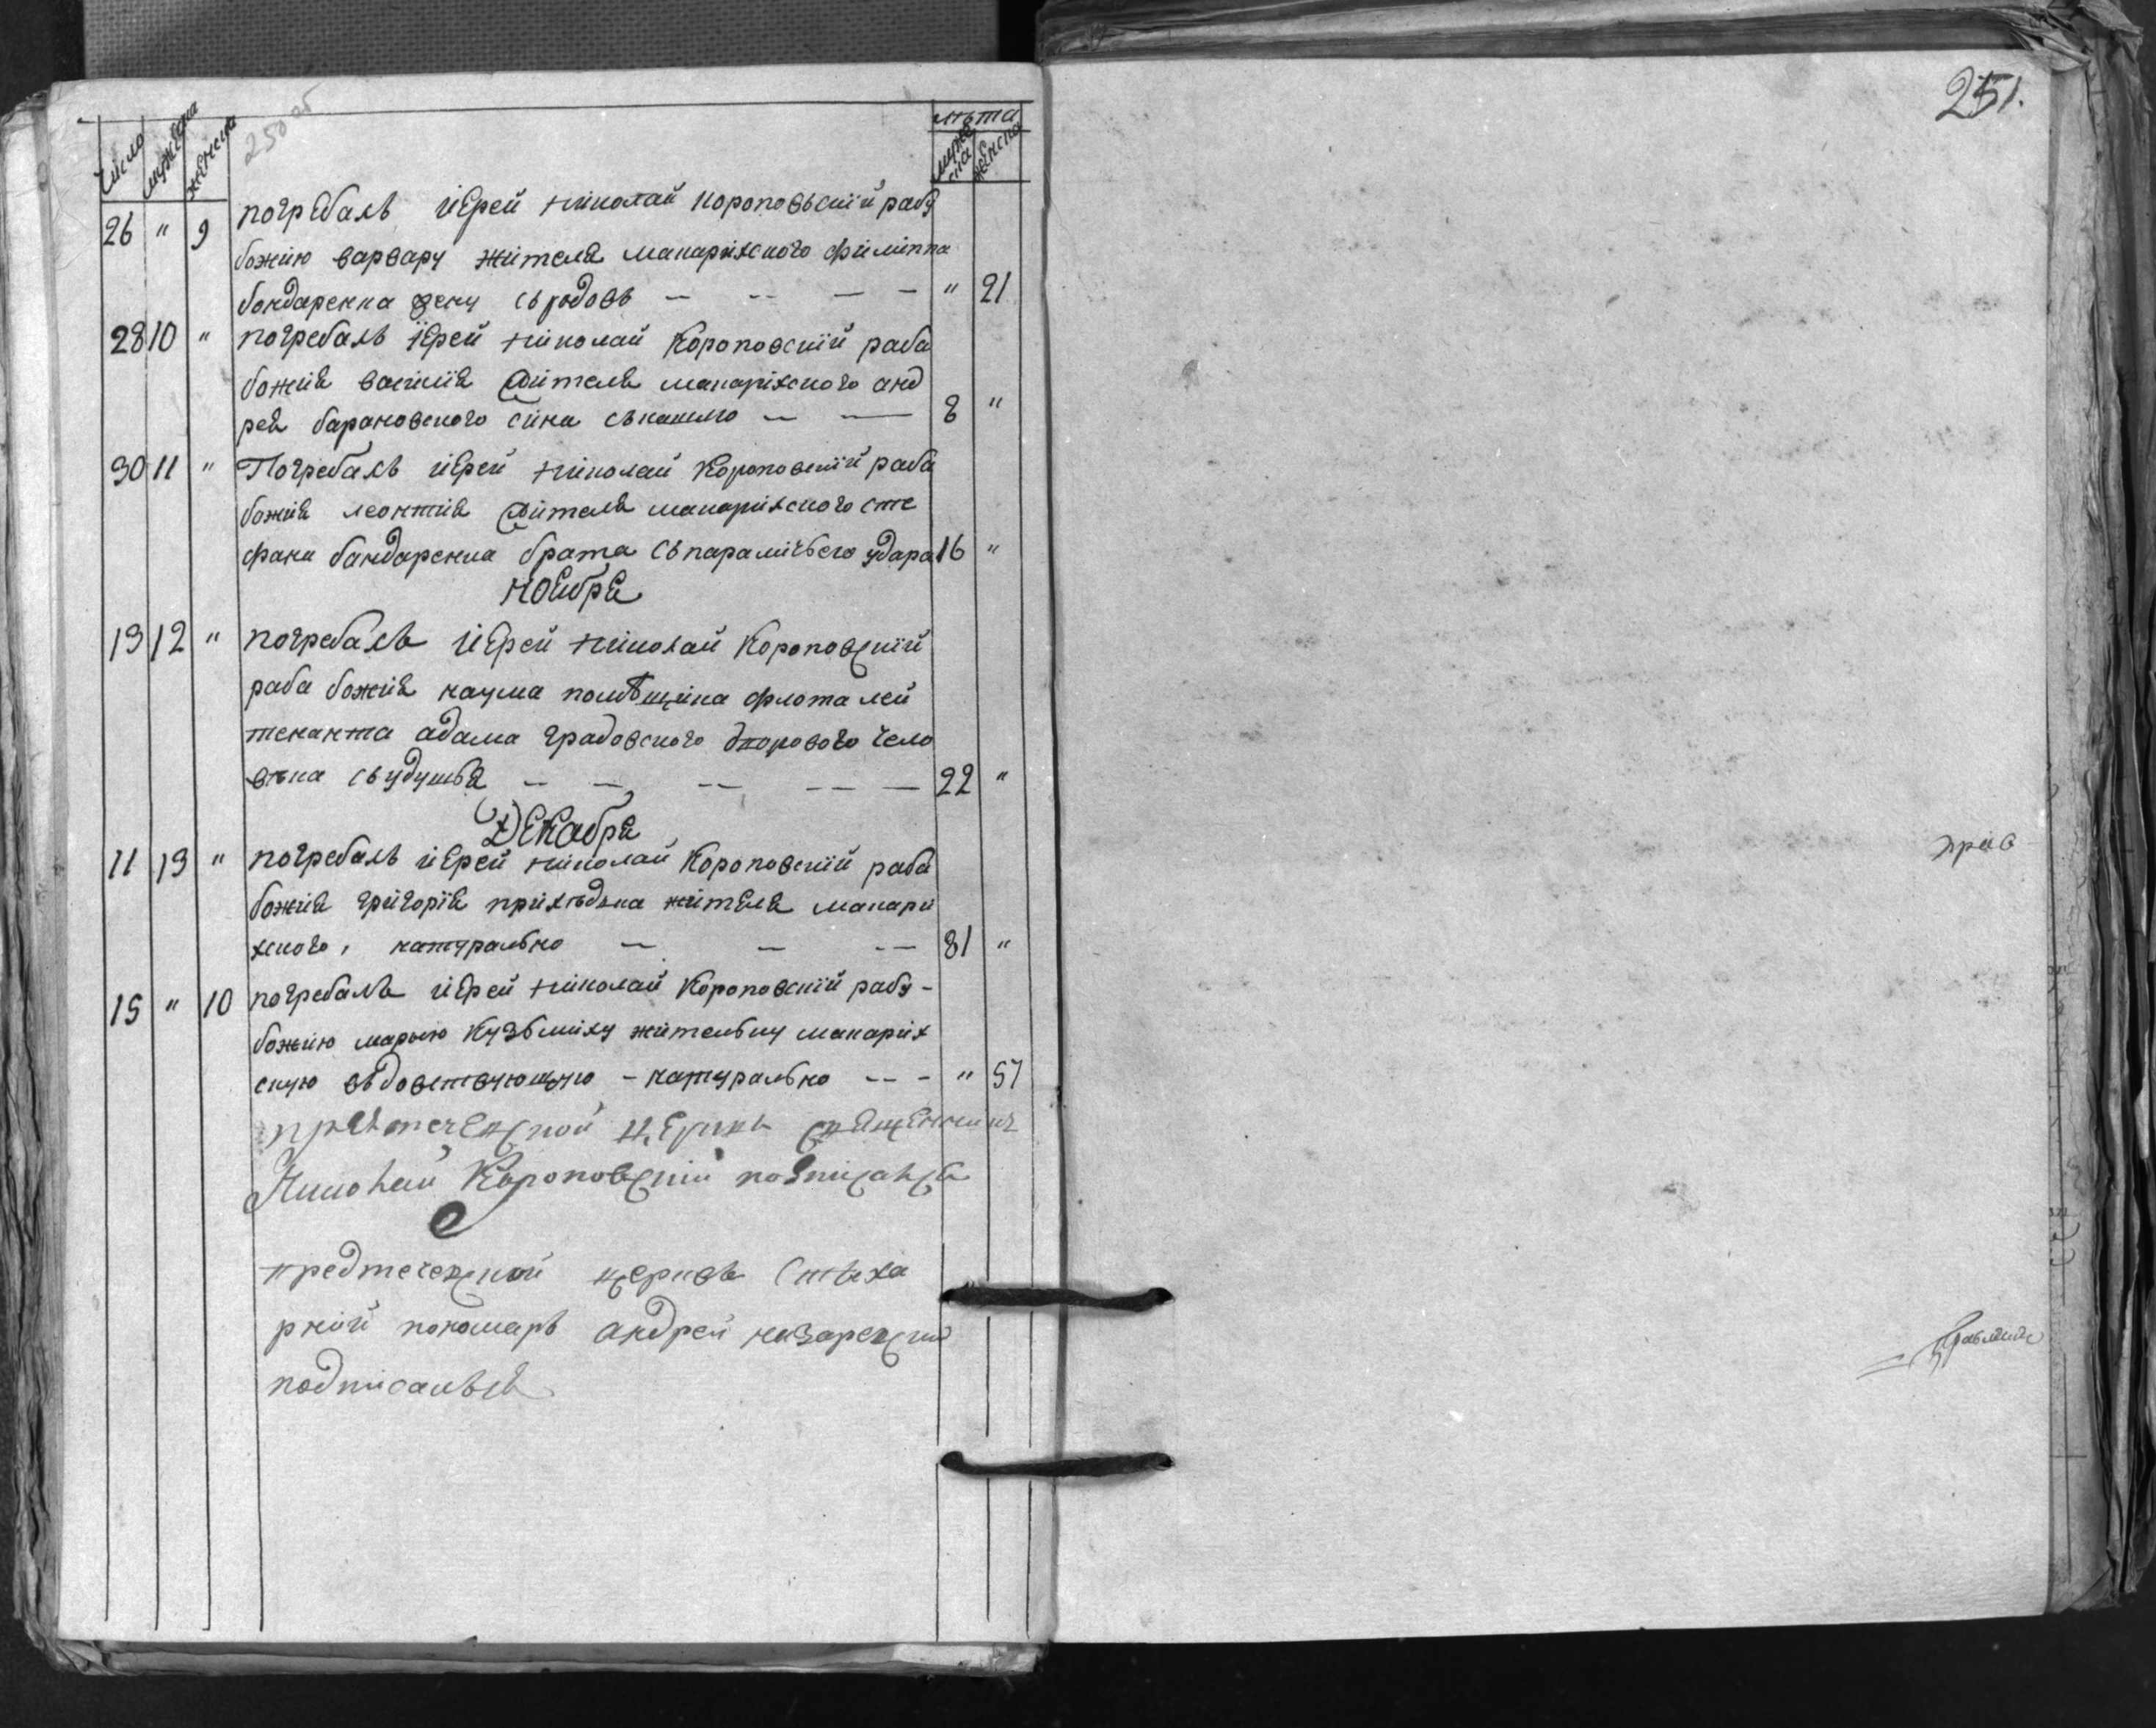 250 об
число мужеска женска лѣта мужеска женска
26 " 9 погребалъ иерей николай короповъскій рабу
божию варвару жителя макарихского филиппа
бондаренка жену съ родовъ — — — — " 21
28 10 " погребалъ іерей николай Короповскій раба
божия василія жителя макарихского анд
рея барановского сина съ кашлю — — 8 "
30 11 " Погребалъ иерей николай Короповскій раба
божия леонтия жителя макарихского сте
фана бандаренка брата съ параличьего удара 16 "
ноября
13 12 " погребалъ иерей николай Короповскій
раба божия наума помѣщика флота лей
тенанта адама градовского дворового чело
вѣка съ удушья — — — — — 22 "
Декабря
11 13 " погребалъ иерей николай Короповскій раба
божия григорія прихѣдька жителя макари
хского, натурально — — — 81 "
15 " 10 погребалъ иерей николай Короповскій рабу
божию марью Кузьмиху жительку макарих
скую вѣдовствующую — натурально — — " 57
предтеченской церкви священникъ
Николай Короповскій подписался
предтеченской церквѣ стиха
рний пономарь андрей назаревский
подписалься
251.